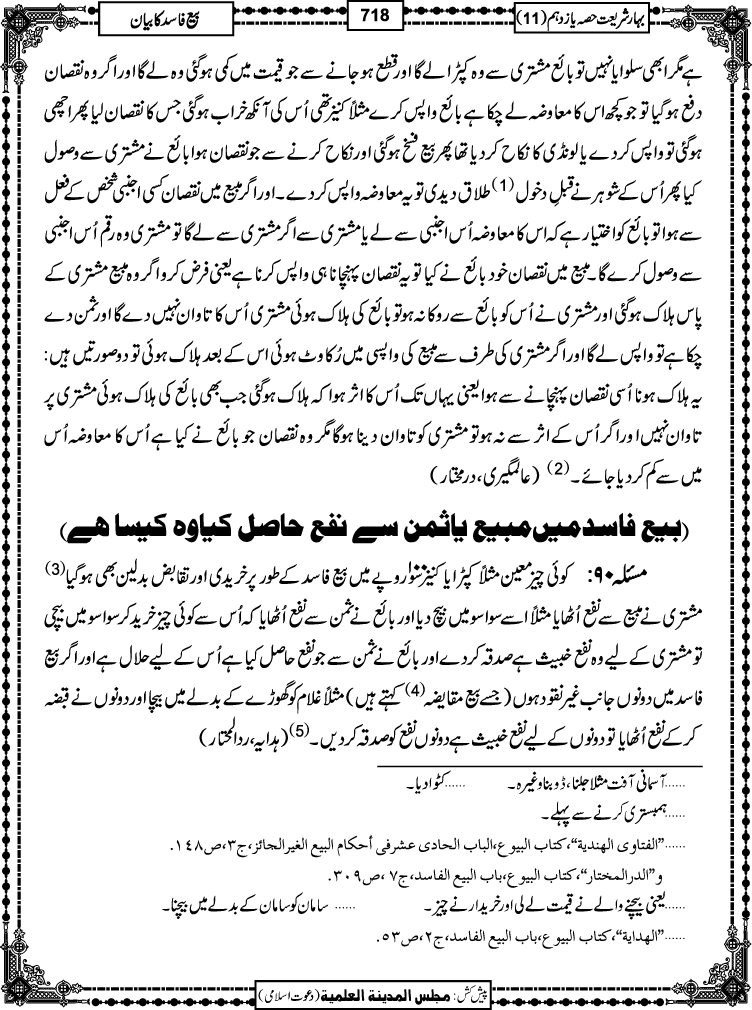 بہارِ شریعت حصہ یازدہم (11)
718
بیع فاسد کا بیان
ہے مگر ابھی سلوایا نہیں تو بائع مشتری سے وہ کپڑا لے گا اور قطع ہو جانے سے جو قیمت میں کمی ہوگئی وہ لے گا اور اگر وہ نقصان
دفع ہو گیا تو جو کچھ اس کا معاوضہ لے چکا ہے بائع واپس کرے مثلاً کنیز تھی اُس کی آنکھ خراب ہوگئی جس کا نقصان لیا پھر اچھی
ہوگئی تو واپس کردے یا لونڈی کا نکاح کر دیا تھا پھر بیع فسخ ہوگئی اور نکاح کرنے سے جو نقصان ہوا بائع نے مشتری سے وصول
کیا پھر اُس کے شوہر نے قبلِ دخول (1) طلاق دیدی تو یہ معاوضہ واپس کردے۔ اور اگر مبیع میں نقصان کسی اجنبی شخص کے فعل
سے ہوا تو بائع کو اختیار ہے کہ اس کا معاوضہ اُس اجنبی سے لے یا مشتری سے اگر مشتری سے لے گا تو مشتری وہ رقم اُس اجنبی
سے وصول کرے گا۔ مبیع میں نقصان خود بائع نے کیا تو یہ نقصان پہنچانا ہی واپس کرنا ہے یعنی فرض کرو اگر وہ مبیع مشتری کے
پاس ہلاک ہوگئی اور مشتری نے اُس کو بائع سے روکا نہ ہو تو بائع کی ہلاک ہوئی مشتری اُس کا تاوان نہیں دے گا اور ثمن دے
چکا ہے تو واپس لے گا اور اگر مشتری کی طرف سے مبیع کی واپسی میں رُکاوٹ ہوئی اس کے بعد ہلاک ہوئی تو دو صورتیں ہیں:
یہ ہلاک ہونا اُسی نقصان پہنچانے سے ہوا یعنی یہاں تک اُس کا اثر ہوا کہ ہلاک ہوگئی جب بھی بائع کی ہلاک ہوئی مشتری پر
تاوان نہیں اور اگر اُس کے اثر سے نہ ہو تو مشتری کو تاوان دینا ہوگا مگر وہ نقصان جو بائع نے کیا ہے اُس کا معاوضہ اُس
میں سے کم کر دیا جائے۔ (2) (عالمگیری، درمختار)
(بیع فاسد میں مبیع یا ثمن سے نفع حاصل کیا وہ کیسا ہے)
مسئلہ ۹۰: کوئی چیز معین مثلاً کپڑا یا کنیز سو۱۰۰ روپے میں بیع فاسد کے طور پر خریدی اور تقابض بدلین بھی ہو گیا (3)
مشتری نے مبیع سے نفع اُٹھایا مثلاً اسے سوا سو میں بیچ دیا اور بائع نے ثمن سے نفع اُٹھایا کہ اُس سے کوئی چیز خرید کر سوا سو میں بیچی
تو مشتری کے لیے وہ نفع خبیث ہے صدقہ کردے اور بائع نے ثمن سے جو نفع حاصل کیا ہے اُس کے لیے حلال ہے اور اگر بیع
فاسد میں دونوں جانب غیر نقود ہوں (جسے بیع مقایضہ (4) کہتے ہیں) مثلاً غلام کو گھوڑے کے بدلے میں بیچا اور دونوں نے قبضہ
کر کے نفع اُٹھایا تو دونوں کے لیے نفع خبیث ہے دونوں نفع کو صدقہ کردیں۔ (5) (ہدایہ، ردالمحتار)
......آسمانی آفت مثلاً جلنا، ڈوبنا وغیرہ۔ ......کٹوا دیا۔
......ہمبستری کرنے سے پہلے۔
......"الفتاوی الهندية"، كتاب البيوع، الباب الحادی عشر فی أحكام البيع الغير الجائز، ج۳، ص۱٤۸.
و"الدر المختار"، كتاب البيوع، باب البيع الفاسد، ج۷، ص۳۰۹.
......یعنی بیچنے والے نے قیمت لے لی اور خریدار نے چیز۔ ......سامان کو سامان کے بدلے میں بیچنا۔
......"الهداية"، كتاب البيوع، باب البيع الفاسد، ج۲، ص۵۳.
پیش کش: مجلس المدینة العلمیة (دعوت اسلامی)